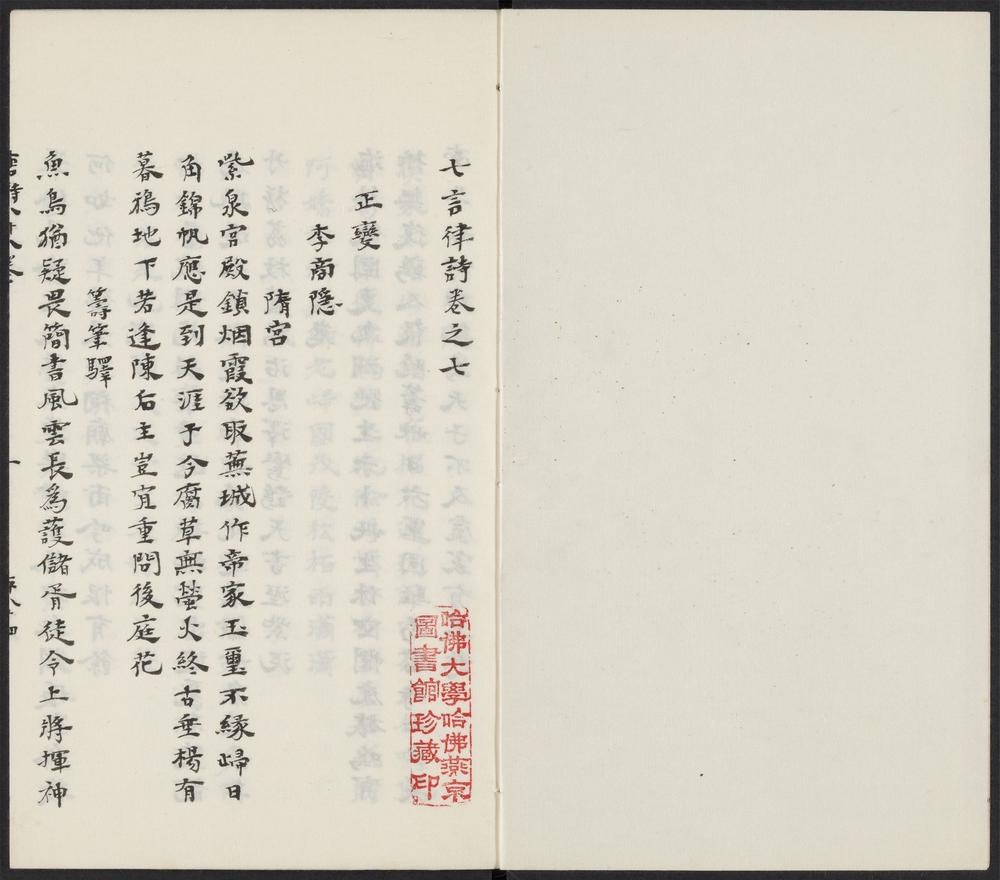 七言律詩卷之七
正變
李商隱
隋宮
紫泉宮殿鎖烟霞欲取蕪城作帝家玉璽不緣歸日
角錦帆應是到天涯于今腐草無螢火終古垂楊有
暮鴉地下若逢陳后主豈宜重問後庭花
籌筆驛
魚鳥猶疑畏簡書風雲長為護儲胥徒令上將揮神
一
哈佛大學哈佛燕京
圖書館珍藏印